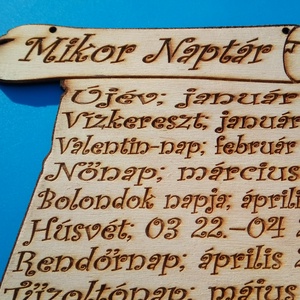 Mikor Naptár
Újév; január
Vízkereszt; január
Valentin-nap; február
Nőnap; március
Bolondok napja; április
Húsvét; 03 22.–04
Rendőrnap; április
Tűzoltónap; május